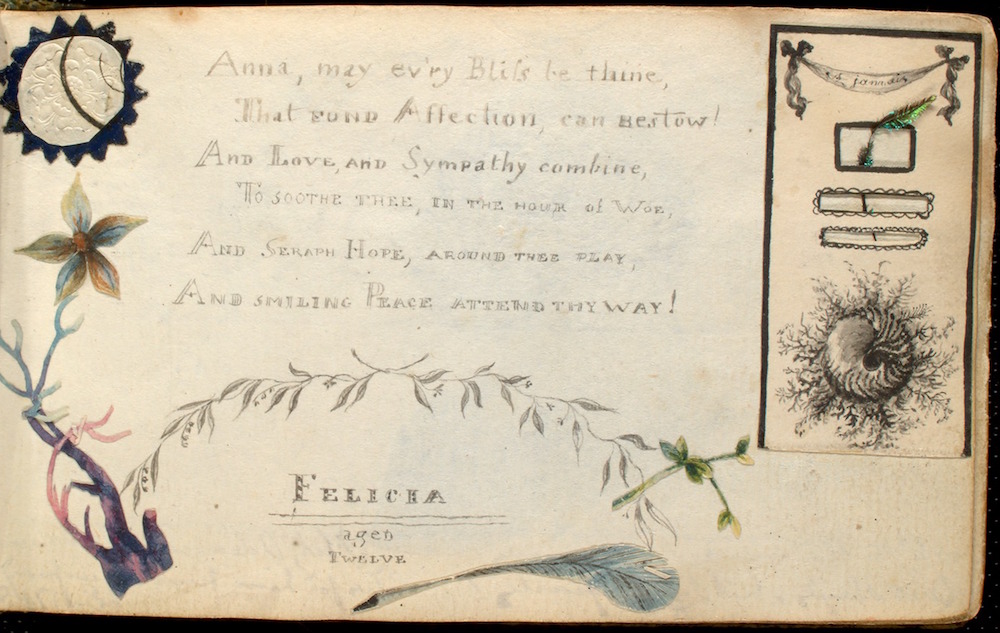 Anna, may ev'ry Bliſs be thine,
That FOND Affection, can BESTOW!
AND LOVE, AND Sympathy combine,
TO SOOTHE THEE, IN THE HOUR of WOE,
AND SERAPH HOPE, AROUND THEE PLAY,
AND SMILING PEACE ATTEND THY WAY!
FELICIA
aged
TWELVE
à jamais